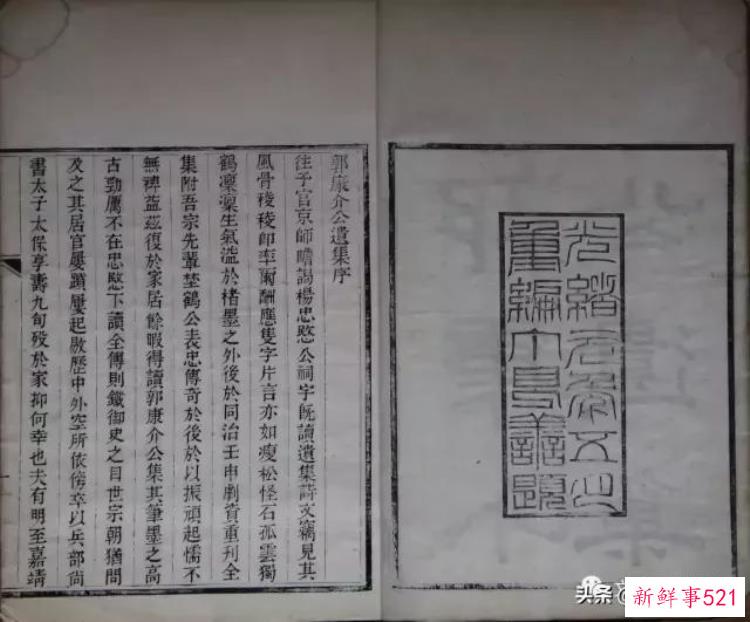 光緒元
重編
題
郭康介公遺集序
往予官京師瞻謁楊忠愍公祠宇既讀遺集詩文竊見其
風骨稜稜卽率爾酬應隻字片言亦如瘦松怪石孤雲獨
鶴凜凜生氣溢於楮墨之外後於同治壬申劑資重刊全
集附吾宗先輩埜鶴公表忠傳奇於後於以振頑起懦不
無裨益茲復於家居餘暇得讀郭康介公集其筆墨之高
古勁厲不在忠愍下讀全傳則鐵御史之目世宗朝猶問
及之其居官屢躓屢起敭歷中外空所依傍卒以兵部尚
書太子太保享壽九旬歿於家抑何幸也夫有明至嘉靖
头条
新鲜事521